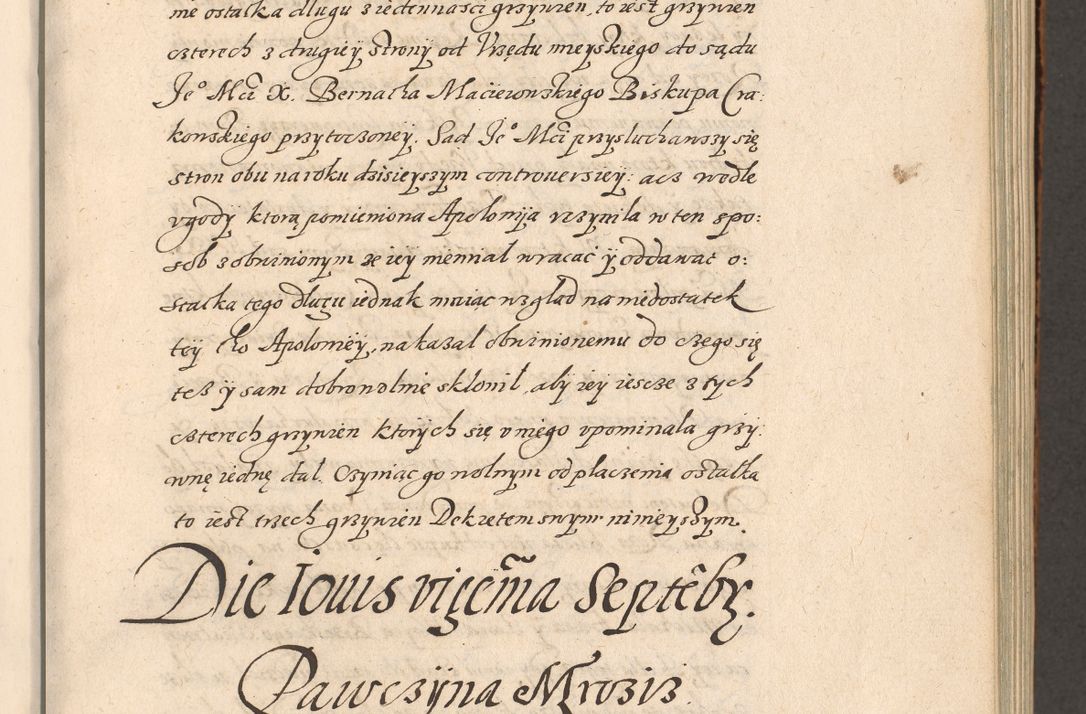 nie ostatka dlugu z iedennasci grzywien, to iest grzywien
czterech z drugiey strony od Vrzędu mieyskiego do sądu
Je° Mci X. Bernatha Macieiowskiego Biskupa Cra:
kowskiego przytoczoney. Sąd Je° Mci przysluchawszy się
stron obu na roku dzisieyszym controuersiey: acz wedle
vgody ktorą pomieniona Apolonija vczynila w ten spo:
sob z obwinionym ze iey miennial wracać y oddawać o:
statka tego dlugu iednak maiąc wzgląd na niedostatek
tey to Apoloniey, nakazal obwinionemu do czego się
tesz y sam dobrowolnie sklonil, aby iey iescze z tych
czterech grzywien ktorych się v niego vpominala grzy:
wnę iednę dal. Czyniąc go wolnym od placzenia ostatka
to iest trzech grzywien Dekretem swym ninieyszym.
Die Iouis vigem̃a Septẽbr.
Pawczyna Mrozis